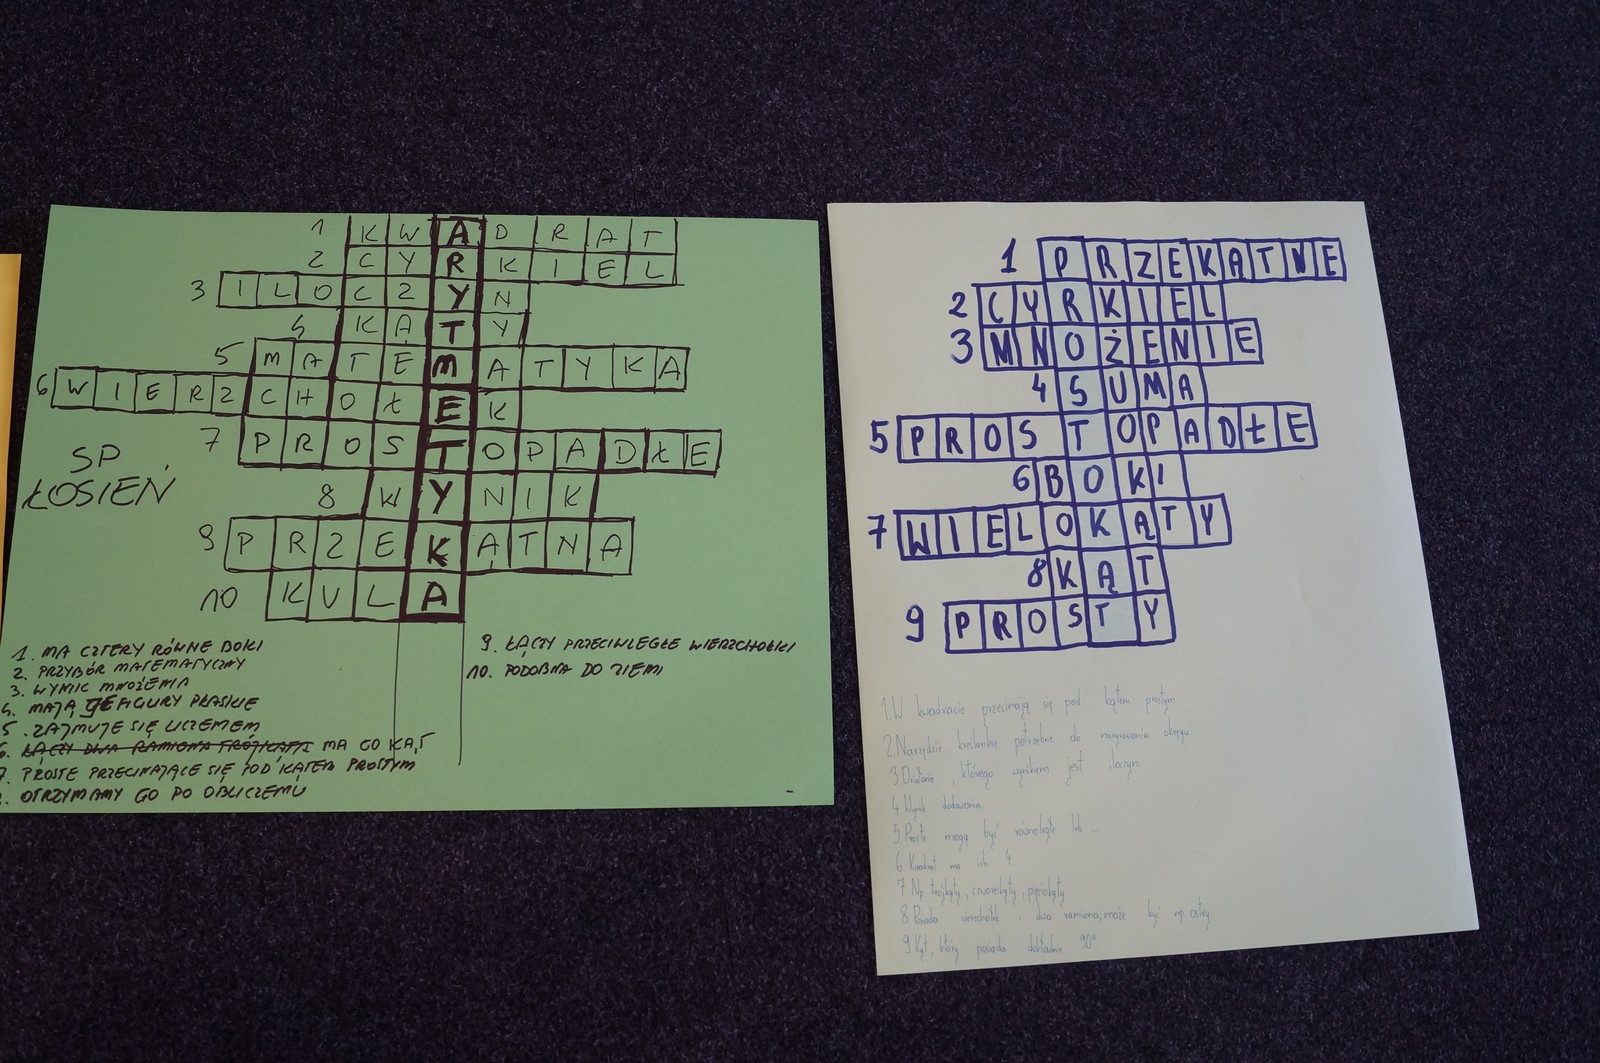 1 KWADRAT
2 CYRKIEL
3 ILOCZYN
4 KĄTY
5 MATEMATYKA
6 WIERZCHOŁEK
7 PROSTOPADŁE
8 WYNIK
9 PRZEKĄTNA
10 KULA
SP
ŁOSIEŃ
1. MA CZTERY RÓWNE BOKI
2. PRZYBÓR MATEMATYCZNY
3. WYNIK MNOŻENIA
4. MAJĄ JE FIGURY PŁASKIE
5. ZAJMUJE SIĘ LICZENIEM
6. ŁĄCZY DWA RAMIONA TRÓJKĄTA MA GO KĄT
7. PROSTE PRZECINAJĄCE SIĘ POD KĄTEM PROSTYM
8. OTRZYMAMY GO PO OBLICZENIU
9. ŁĄCZY PRZECIWLEGŁE WIERZCHOŁKI
10. PODOBNA DO ZIEMI
1 PRZEKĄTNE
2 CYRKIEL
3 MNOŻENIE
4 SUMA
5 PROSTOPADŁE
6 BOKI
7 WIELOKĄTY
8 KĄT
9 PROSTY
1. W kwadracie przecinają się pod kątem prostym.
2. Narzędzie kreślarskie potrzebne do narysowania okręgu.
3 Działanie, którego wynikiem jest iloczyn.
4 Wynik dodawania.
5. Proste mogą być równoległe lub ...
6. Kwadrat ma ich 4
7 Np trójkąty, czworokąty, pięciokąty
8 Posiada wierzchołek i dwa ramiona, może być np. ostry.
9. Kąt, który posiada dokładnie 90°